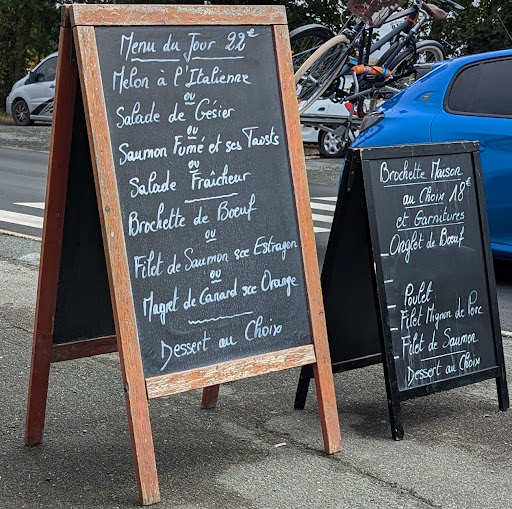 Menu du Jour 22€
Melon à l'Italienne
ou
Salade de Gésier
ou
Saumon Fumé et ses Taosts
ou
Salade Fraîcheur
Brochette de Boeuf
ou
Filet de Saumon sce Estragon
ou
Magret de Canard sce Orange
Dessert au Choix
Brochette Maison
au Choix 18€
et Garnitures
Onglet de Boeuf
Poulet
Filet Mignon de Porc
Filet de Saumon
Dessert au Choix